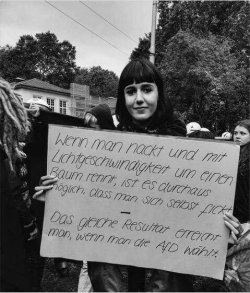 Wenn man nackt und mit
Lichtgeschwindigkeit um einen
Baum rennt, ist es durchaus
möglich, dass man sich selbst fickt.
–
Das gleiche Resultat erreicht
man, wenn man die AfD wählt.